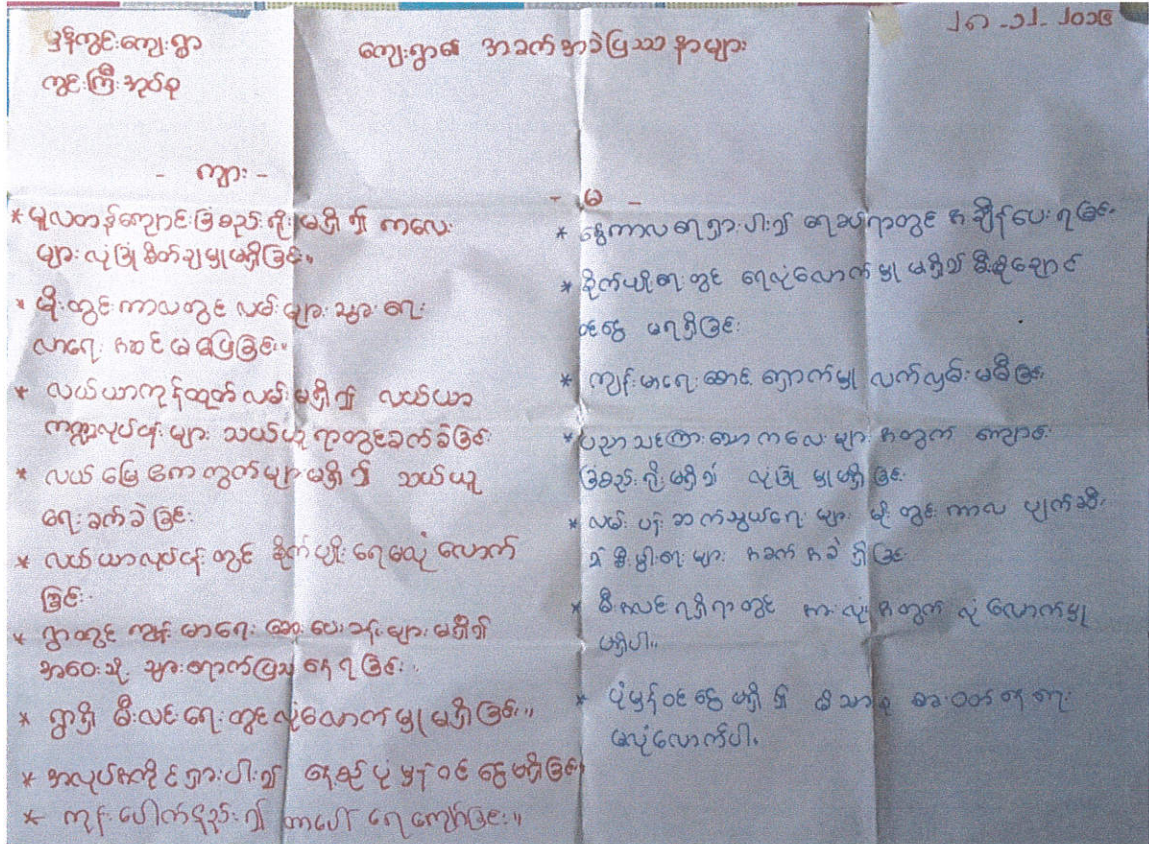 မုန်ကွင်းကျေးရွာ
ကွင်းကြီးအုပ်စု
ကျေးရွာ၏ အခက်အခဲပြဿနာများ
၂၈-၁၂-၂၀၁၆
- ကျား -
* မူလတန်းကျောင်းခြံစည်းရိုးမရှိ၍ ကလေး
များလုံခြုံစိတ်ချမှုမရှိခြင်း။
* မိုးတွင်းကာလတွင် လမ်းများ သွားရေး
လာရေး အဆင်မပြေခြင်း။
* လယ်ယာကုန်ထုတ်လမ်းမရှိ၍ လယ်ယာ
ကဏ္ဍလုပ်ငန်းများ သယ်ယူရာတွင်ခက်ခဲခြင်း
* လယ်မြေ ကွက်များမရှိ၍ သယ်ယူ
ရေးခက်ခဲခြင်း
* လယ်ယာလုပ်ငန်းတွင် စိုက်ပျိုးရေမလုံလောက်
ခြင်း။
* ရွာတွင် ကျန်းမာရေးဆေးပေးခန်းများမရှိ၍
အဝေးသို့ သွားရောက်ပြသနေရခြင်း။
* ရွာရှိ မီးလင်းရေးတွင်လုံလောက်မှုမရှိခြင်း။
* အလုပ်အကိုင်ရှားပါး၍ နေ့စဉ်ပုံမှန်ဝင်ငွေမရှိခြင်း
* ရေကျော်ခြင်း။
- မ -
* နွေကာလရေရှားပါး၍ ရေခပ်ရာတွင် အချိန်ပေးရခြင်း
* စိုက်ပျိုးရေးတွင် ရေလုံလောက်မှုမရှိ၍
ဝင်ငွေ မရရှိခြင်း
* ကျန်းမာရေးစောင့်ရှောက်မှု လက်လှမ်းမမီခြင်း
* ပညာသင်ကြားသောကလေးများအတွက် ကျောင်း
ခြံစည်းရိုးမရှိ၍ လုံခြုံမှုမရှိခြင်း
* လမ်းပန်းဆက်သွယ်ရေးများ မိုးတွင်းကာလ ပျက်စီး
၍ အခက်အခဲရှိခြင်း
* မီးအလင်းရရှိရာတွင် အားလုံးအတွက် လုံလောက်မှု
မရှိပါ။
* ပုံမှန်ဝင်ငွေမရှိ၍ မိသားစု စားဝတ်နေရေး
မလုံလောက်ပါ။